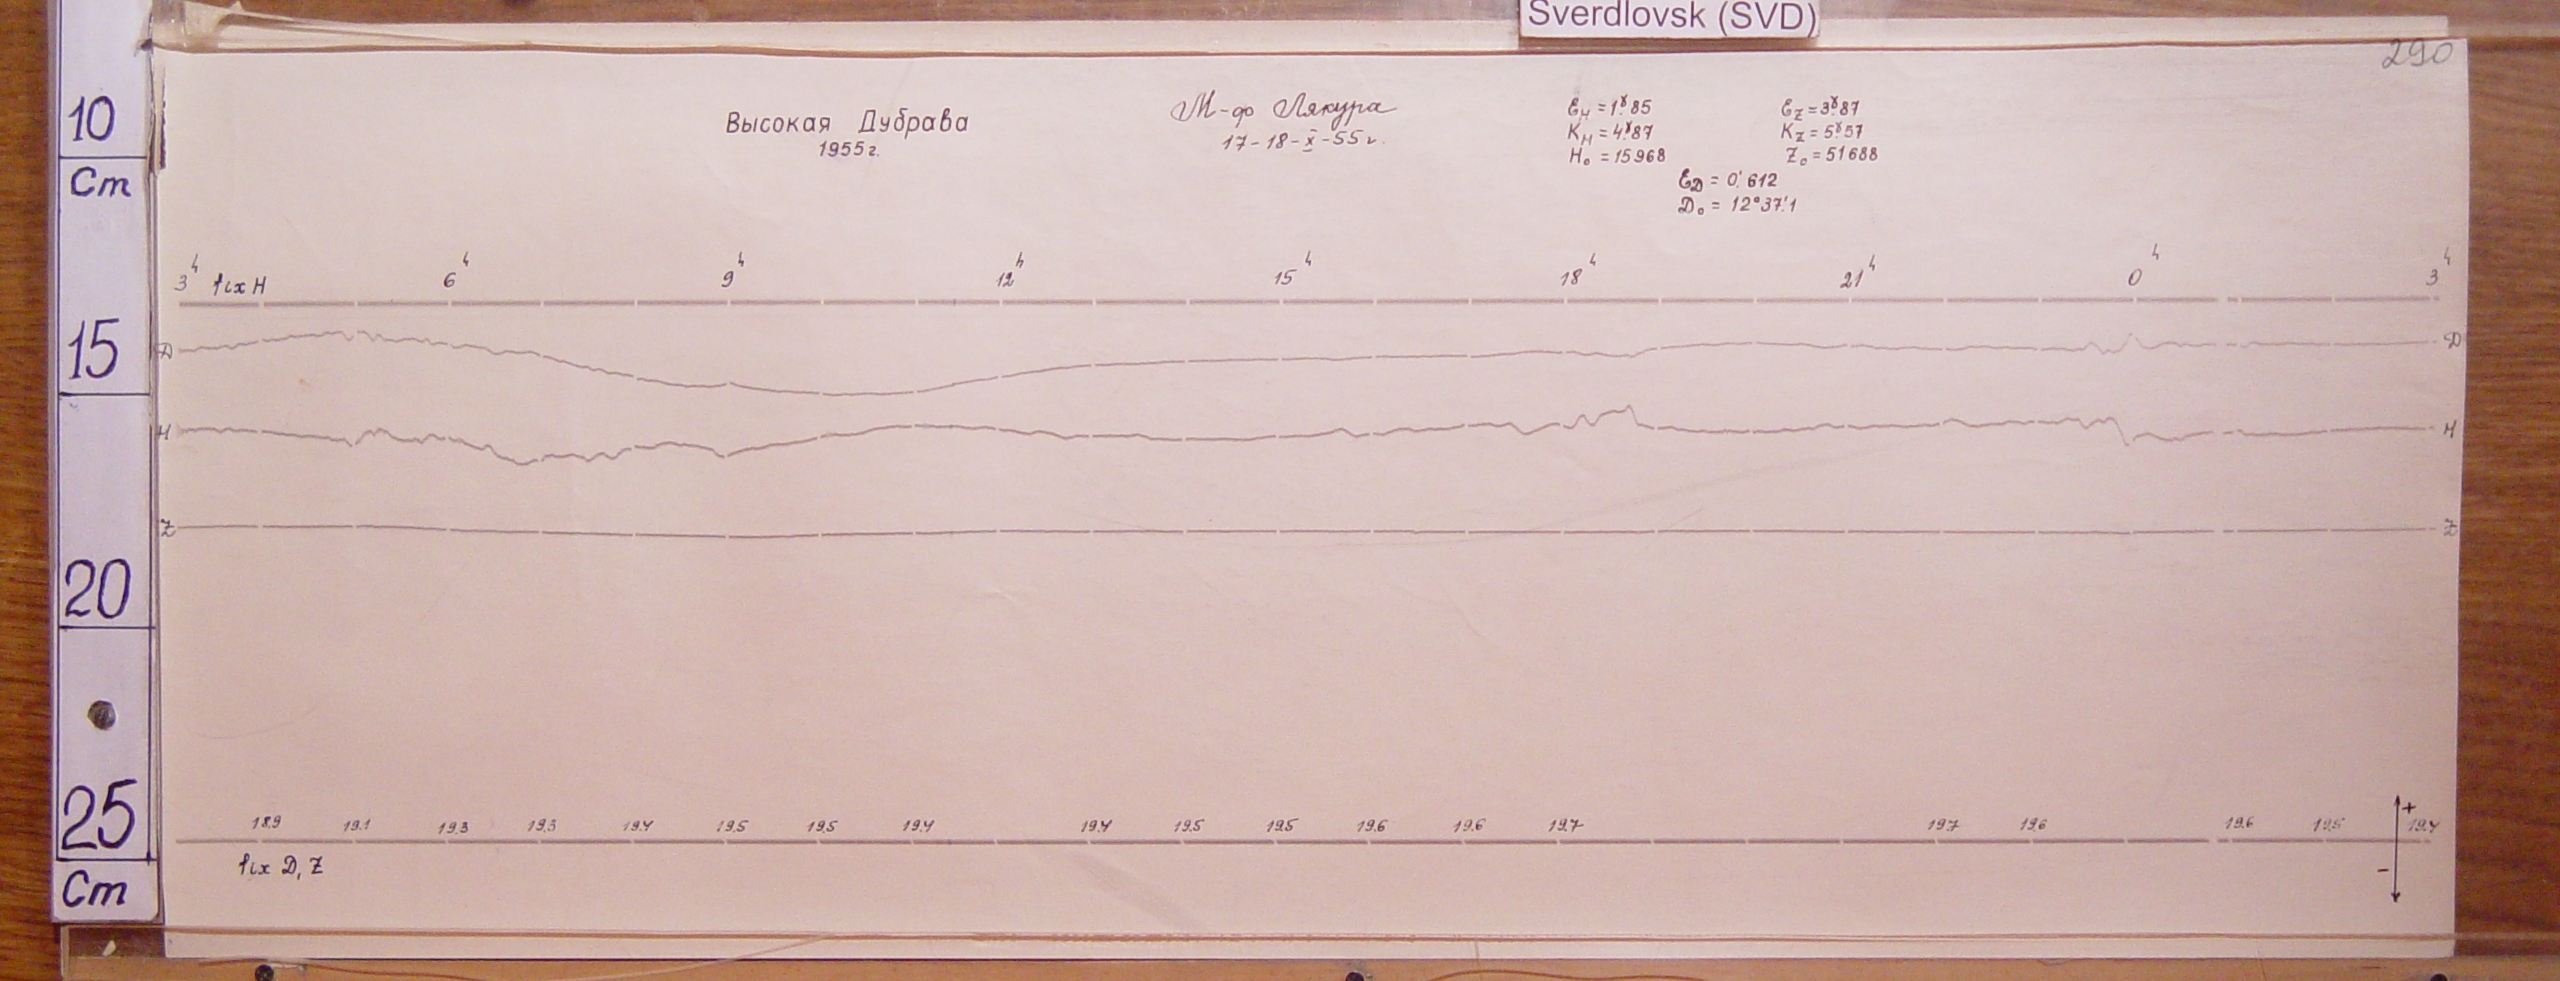 Sverdlovsk (SVD)
290
10
Cm
15
20
25
Cm
Высокая Дубрава
1955 г.
М-ф Лякура
17-18-X-55 г.
ε_H = 1ˠ.85
K_H = 4ˠ.87
H_o = 15968
ε_Z = 3ˠ.87
K_Z = 5ˠ.57
Z_o = 51688
ε_D = 0'.612
D_o = 12°37'.1
3ʰ fix H 6ʰ 9ʰ 12ʰ 15ʰ 18ʰ 21ʰ 0ʰ 3ʰ
D D
H H
Z Z
18.9 19.1 19.3 19.3 19.4 19.5 19.5 19.4 19.4 19.5 19.5 19.6 19.6 19.7 19.7 19.6 19.6 19.5 19.4
+
fix D, Z
−